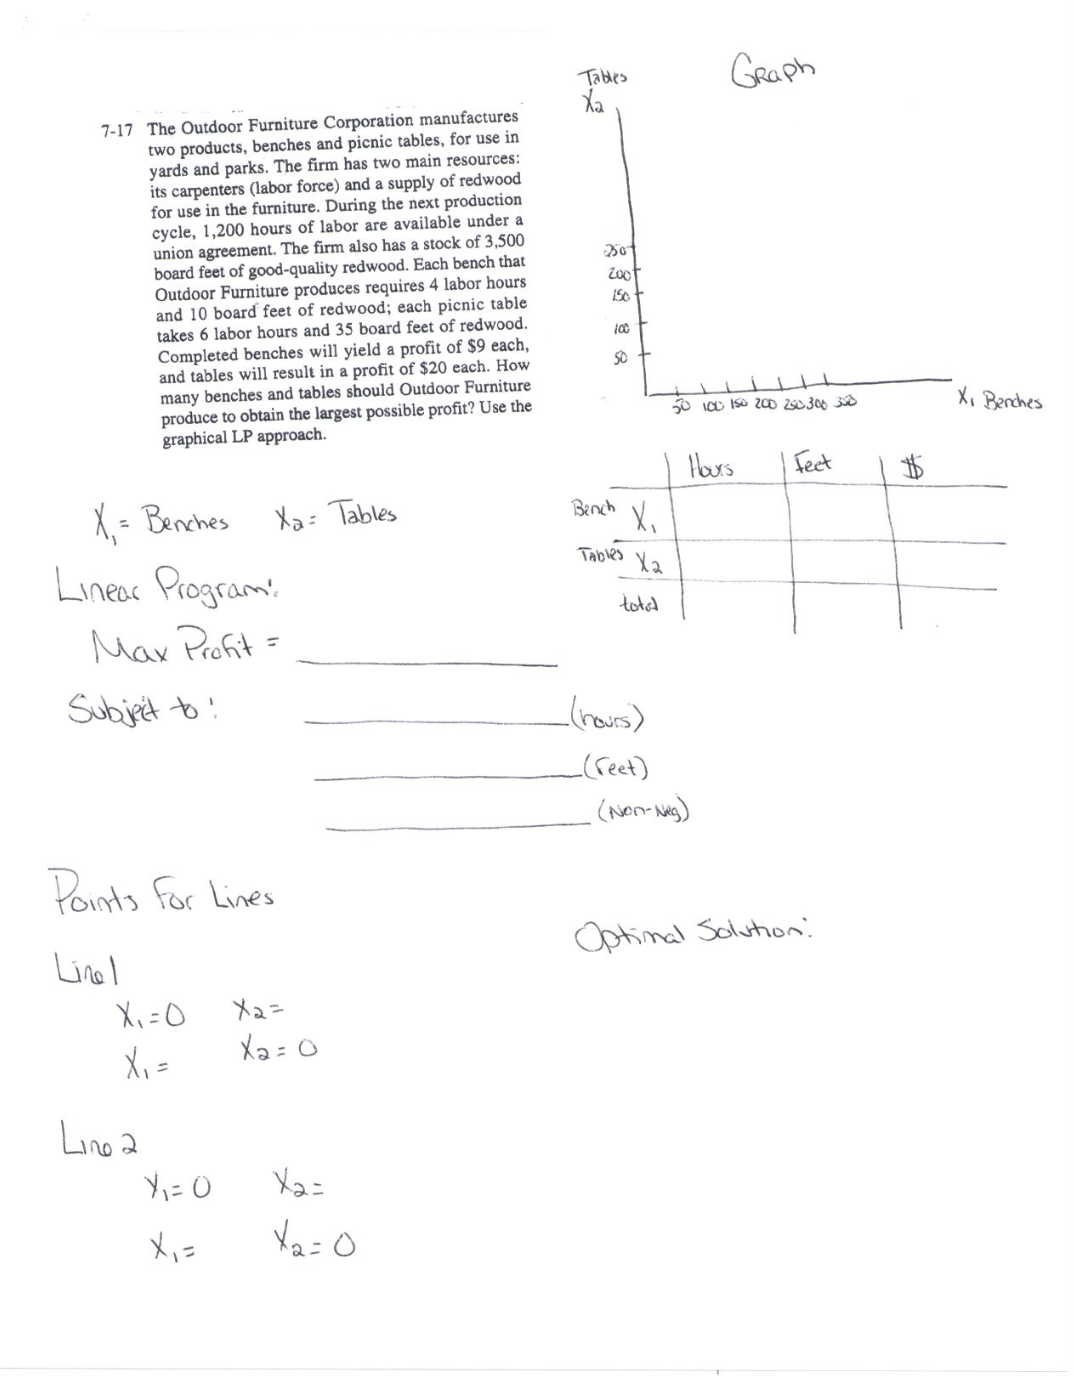 Graph
Tables
X₂
7-17 The Outdoor Furniture Corporation manufactures
two products, benches and picnic tables, for use in
yards and parks. The firm has two main resources:
its carpenters (labor force) and a supply of redwood
for use in the furniture. During the next production
cycle, 1,200 hours of labor are available under a
union agreement. The firm also has a stock of 3,500
board feet of good-quality redwood. Each bench that
Outdoor Furniture produces requires 4 labor hours
and 10 board feet of redwood; each picnic table
takes 6 labor hours and 35 board feet of redwood.
Completed benches will yield a profit of $9 each,
and tables will result in a profit of $20 each. How
many benches and tables should Outdoor Furniture
produce to obtain the largest possible profit? Use the
graphical LP approach.
250
200
150
100
50
50 100 150 200 250 300 350
X₁ Benches
Hours Feet $
Bench X₁
Tables X₂
total
X₁ = Benches X₂ = Tables
Linear Program:
Max Profit =
Subject to:
(hours)
(feet)
(Non-Neg)
Points For Lines
Optimal Solution:
Line 1
X₁ = 0 X₂ =
X₁ = X₂ = 0
Line 2
X₁ = 0 X₂ =
X₁ = X₂ = 0